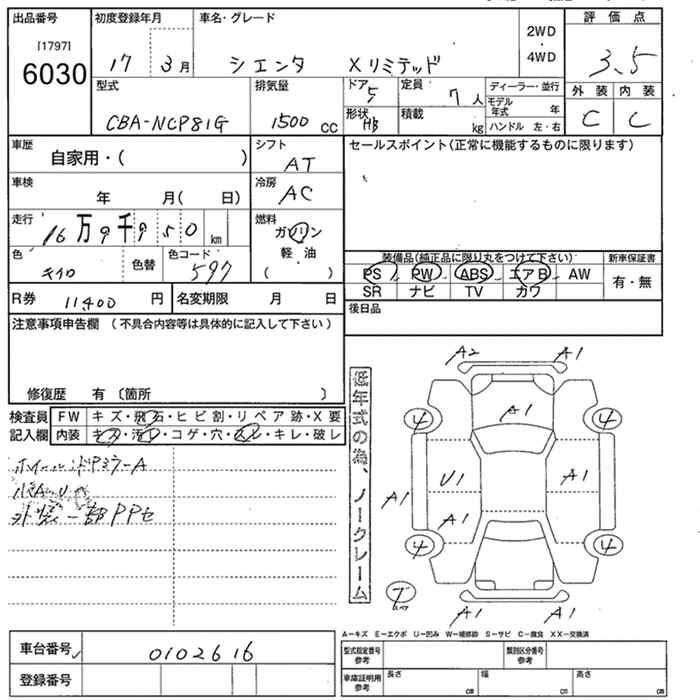 出品番号 初度登録年月 車名・グレード 2WD・4WD 評価点
[1797]
6030 17 3月 シエンタ Xリミテッド 3.5
型式 排気量 ドア 5 定員 7人 ディーラー・並行 外装 内装
モデル年式 年
CBA-NCP81G 1500 cc 形状 HB 積載 kg ハンドル 左・右 C C
車歴 自家用・( ) シフト AT セールスポイント(正常に機能するものに限ります)
車検 年 月( 日) 冷房 AC
走行 16万9千950km 燃料 ガソリン 軽・油 ( )
色 色替 色コード 597
装備品(純正品に限り丸をつけて下さい) 新車保証書
PS PW ABS エアB AW 有・無
SR ナビ TV カワ
R券 11,400円 名変期限 月 日 後日品
注意事項申告欄(不具合内容等は具体的に記入して下さい)
修復歴 有〔箇所 〕
検査員記入欄 FW キズ・飛石・ヒビ割・リペア跡・X要
内装 キズ・汚レ・コゲ・穴・スレ・キレ・破レ
外装一部PPセ
低年式の為、ノークレーム
A2 A1
A1
4 4
U1 A1
A1 A1
4 4
T
A1 A1
A-キズ E-エクボ U-凹み W-補修跡 S-サビ C-腐食 XX-交換済
車台番号 0102616 型式指定番号参考 類別区分番号参考
登録番号 車庫証明用参考 長さ cm 幅 cm 高さ cm